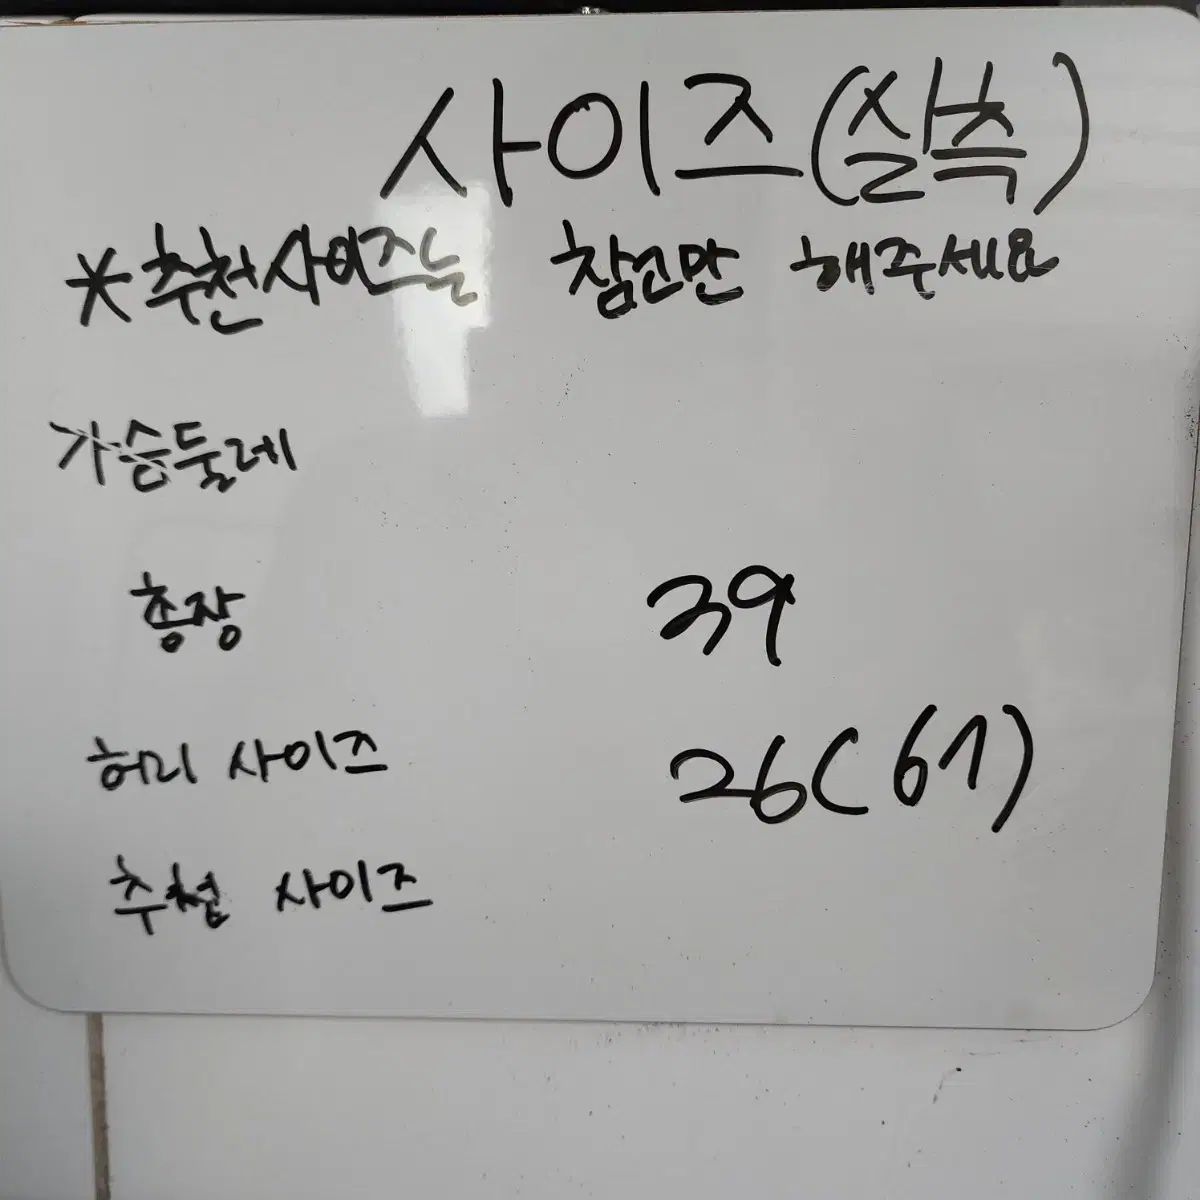 사이즈(실측)
*추천사이즈는 참고만 해주세요
가슴둘레
총장 39
허리 사이즈 26(67)
추천 사이즈